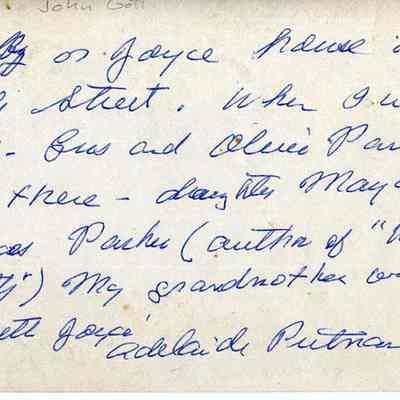 John Goff
or Joyce house
Street. When I
- Gus and Olivia Par
there - daughter May
Parker (author of "
") My grandmother
Joyce
Adelaide Putnam